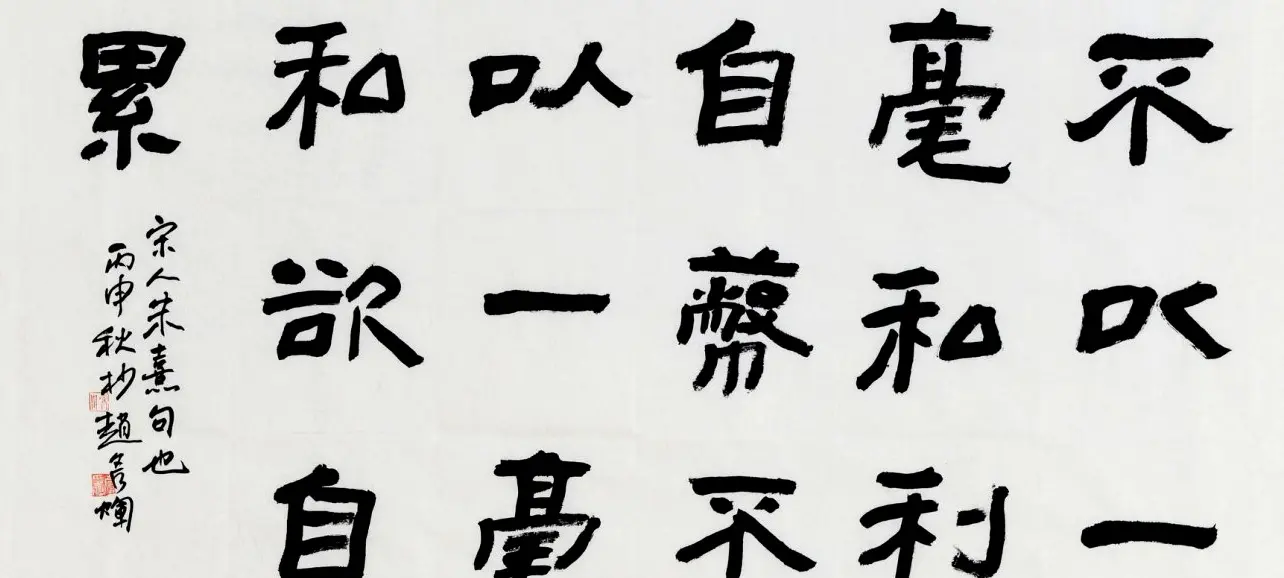 不以一
毫私利
自蔽不
以一毫
私欲自
累
宋人朱熹句也
丙申秋杪趙